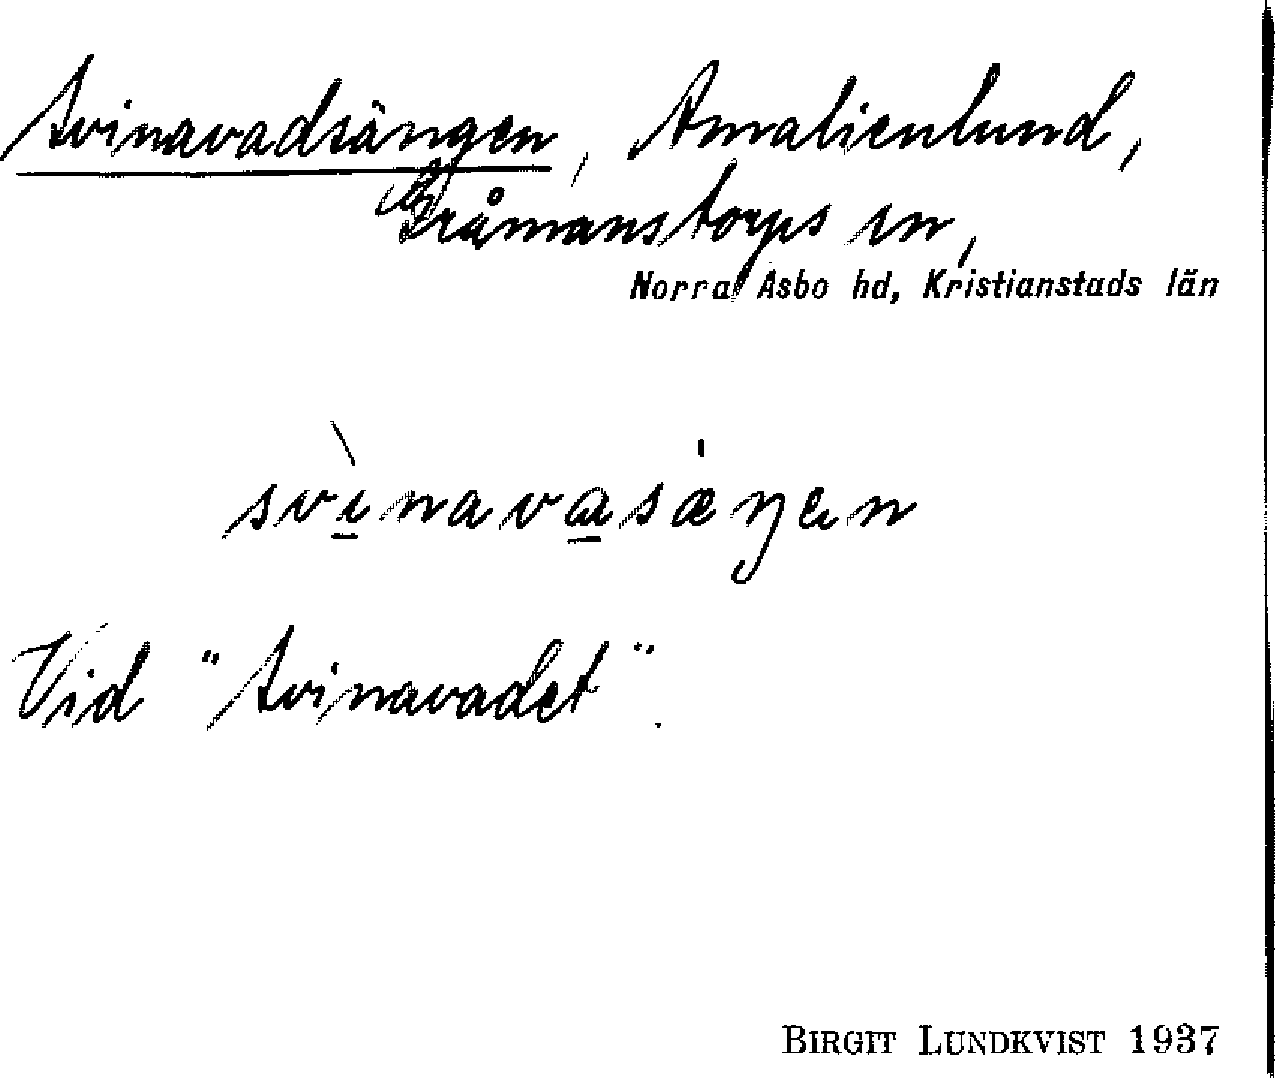 Svinavadsängen, Amalienlund,
Gråmanstorps sn,
Norra Åsbo hd, Kristianstads län
svìnavasæŋen
Vid "Svinavadet".
BIRGIT LUNDKVIST 1937